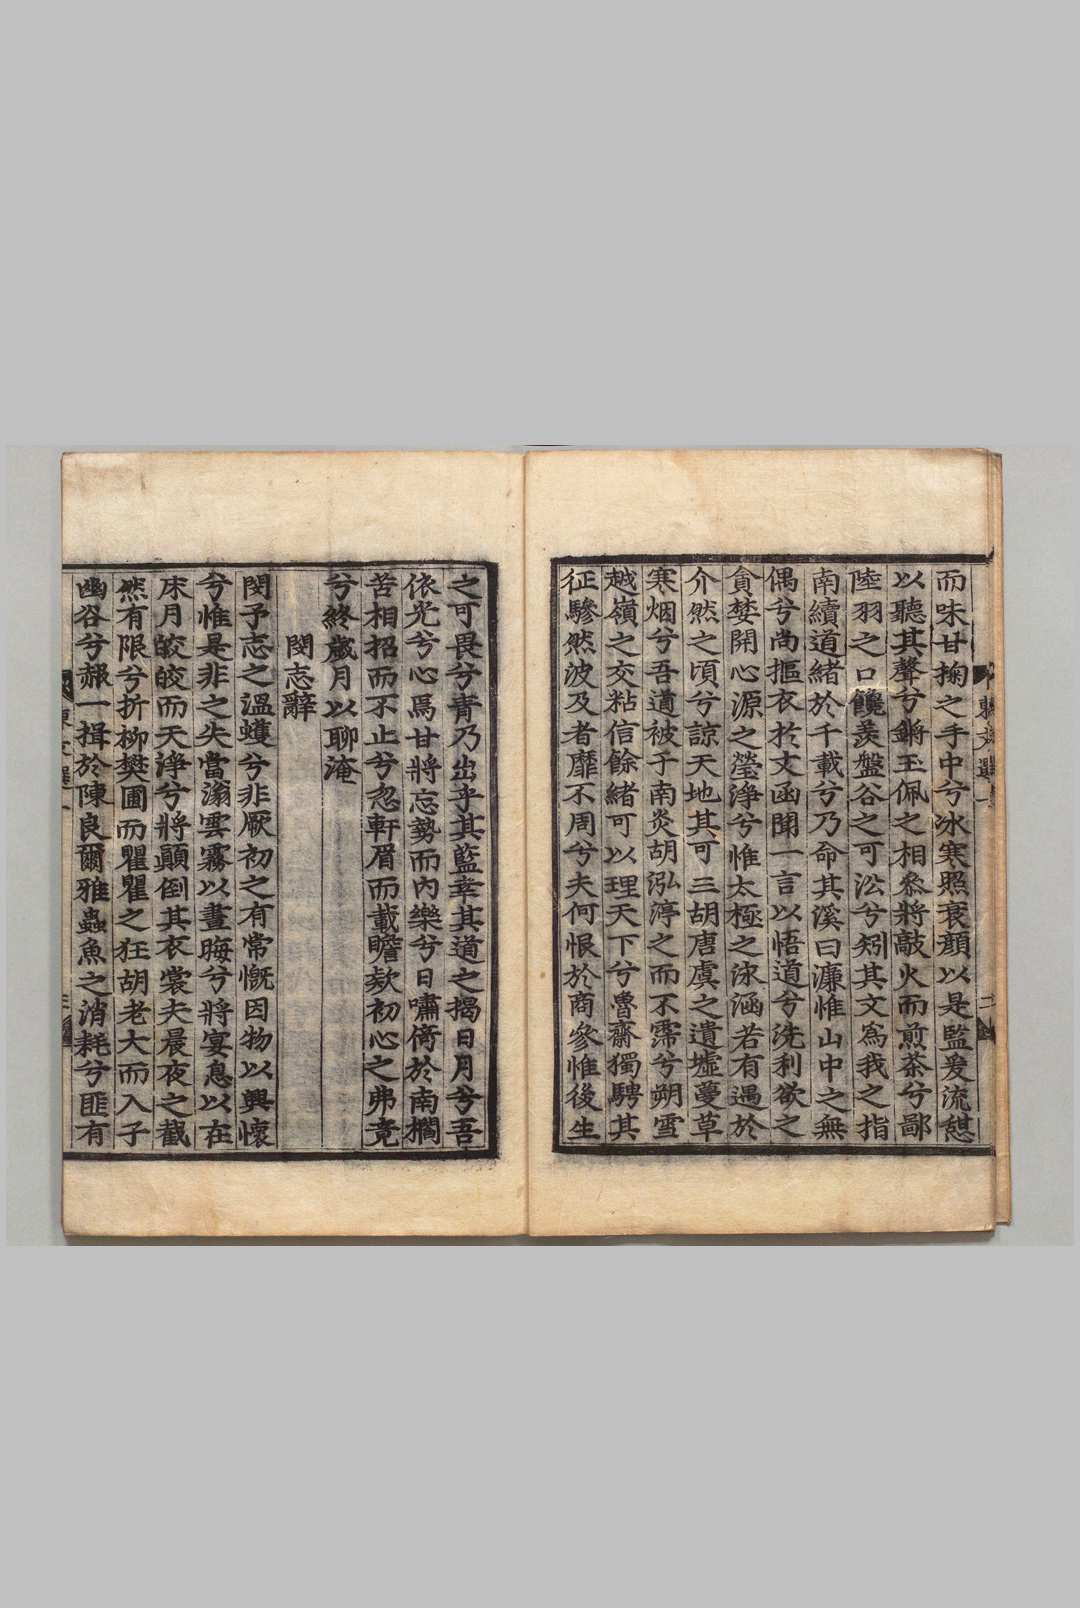 而味甘掬之手中兮冰寒照衰顔以是監爰流憇
以聽其聲兮鏘玉佩之相叅將敲火而煎茶兮鄙
陸羽之口饞羨盤谷之可沿兮矧其文爲我之指
南續道緖於千載兮乃命其溪曰濂惟山中之無
偶兮尚摳衣於文函聞一言以悟道兮洗利欲之
貪婪開心源之瑩淨兮惟太極之泳涵若有遇於
介然之頃兮諒天地其可三胡唐虞之遺墟蔓草
寒烟兮吾道被于南炎胡泓渟之而不霈兮朔雪
越嶺之交粘信餘緖可以理天下兮魯齋獨騁其
征驂然波及者靡不周兮夫何恨於商參惟後生
之可畏兮靑乃出乎其藍幸其道之揭日月兮吾
依光兮心焉甘將忘勢而內樂兮日嘯傲於南榻
苦相招而不止兮忽軒眉而載瞻欸初心之弗竟
兮終歲月以聊淹
閔志辭
閔予志之溫蠖兮非厥初之有常慨因物以興懷
兮惟是非之失當滃雲霧以晝晦兮將宴息以在
床月皎皎而天淨兮將顚倒其衣裳夫晨夜之截
然有限兮折柳樊圃而瞿瞿之狂胡老大而入于
幽谷兮郝一揖於陳良爾雅蟲魚之消耗兮匪有
東文選一
二
東文選一
三